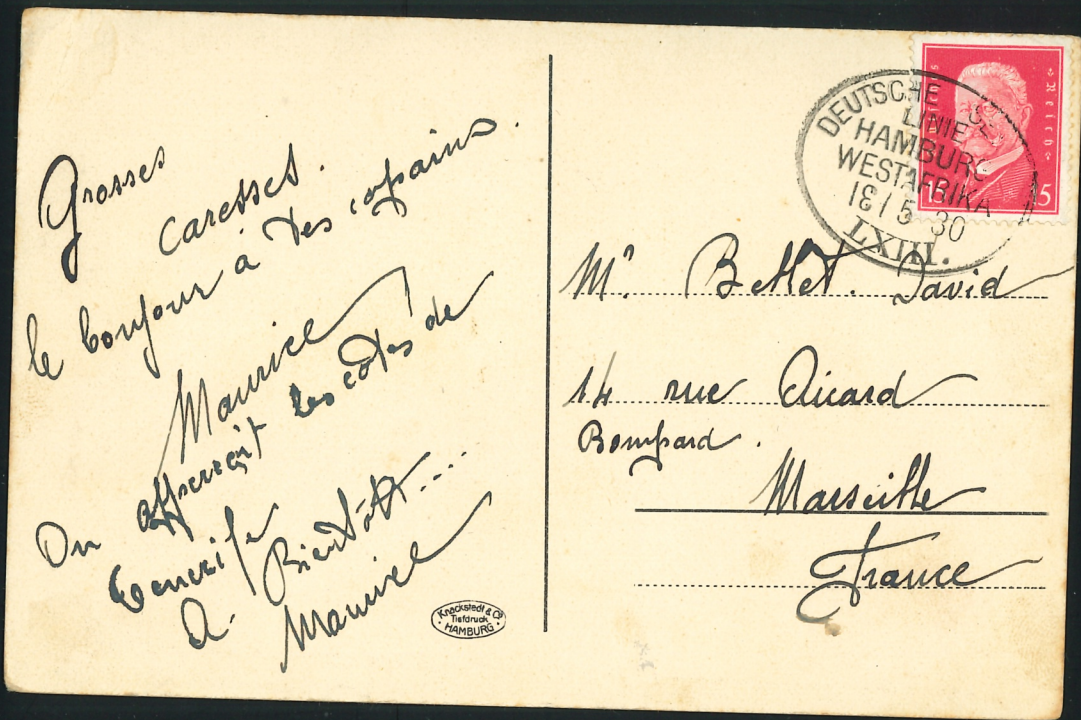 Grosses
caresses.
le bonjour à tes copains.
Maurice
On apperçoit les côtes de
Tenerife
A. Bientôt...
Maurice
Knackstedt & Co
Tiefdruck
HAMBURG
Deutsches Reich
15 15
DEUTSCHE SEE
LINIE
HAMBURG
WESTAFRIKA
18/5 30
LXIII.
Mr. Bellet. David
14 rue Aicard
Bompard.
Marseille
France